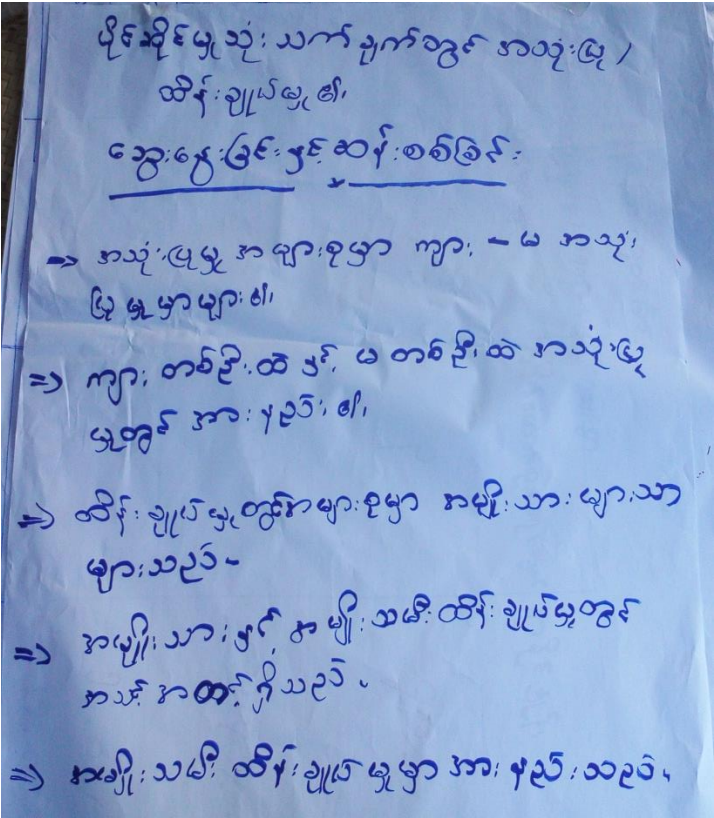 ပိုင်ဆိုင်မှုသုံးသက်ချက်တွင် အသုံးပြု /
ထိန်းချုပ်မှု၏၊
ဆွေးနွေးခြင်းနှင့် ဆန်းစစ်ခြင်း
⇒ အသုံးပြုမှု အများစုမှာ ကျား - မ အသုံး
ပြုမှုမှာများ၏၊
⇒ ကျား တစ်ဦးထဲ နှင့် မ တစ်ဦးထဲ အသုံးပြု
မှုတွင် အားနည်း၏၊
⇒ ထိန်းချုပ်မှုတွင်အများစုမှာ အမျိုးသားများသာ
များသည်-
⇒ အမျိုးသားနှင့် အမျိုးသမီးထိန်းချုပ်မှုတွင်
အသင့်အတင့်ရှိသည်။
⇒ အမျိုးသမီး ထိန်းချုပ်မှုမှာ အားနည်းသည်။